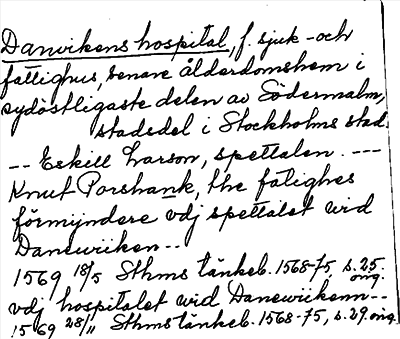 Danvikens hospital, f. sjuk- och
fattighus, senare ålderdomshem i
sydöstligaste delen av Södermalm,
stadsdel i Stockholms stad.
-- Eskill Larson, spettalen. ---
Knut Porshank, the fatighes
förmyndere vdj spettalet wid
Danewiiken--
1569 18/5 Sthms tänkeb. 1568-75, s. 25.
orig.
vdj hospitalet wid Danewiikenn--
1569 28/11 Sthms tänkeb. 1568-75, s. 29. orig.